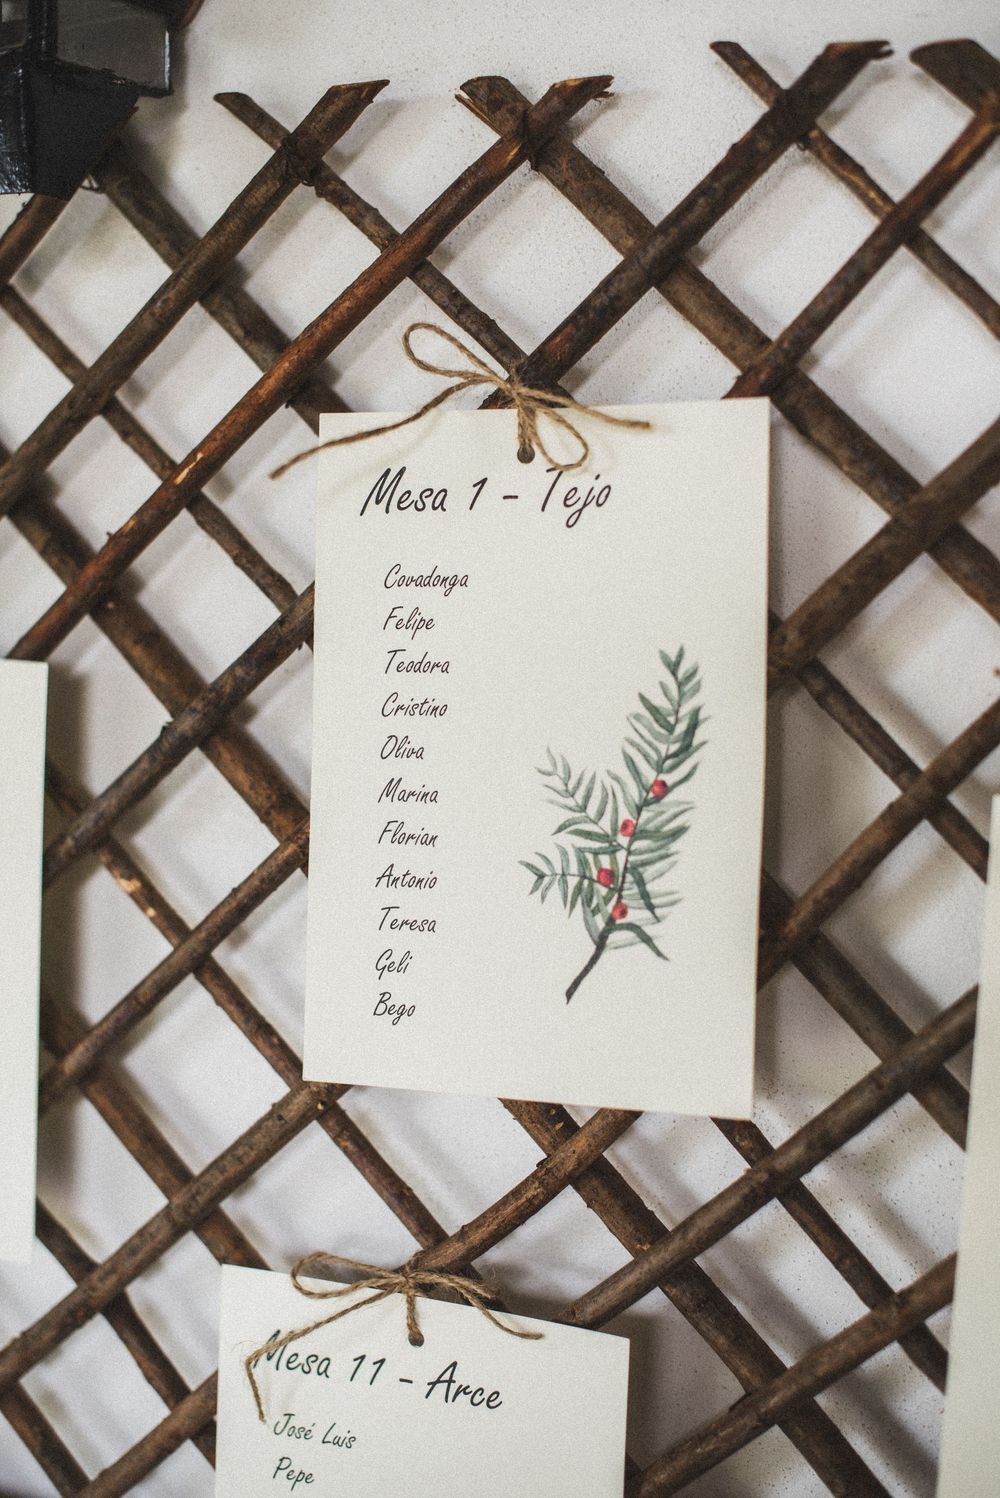 Mesa 1 - Tejo
Covadonga
Felipe
Teodora
Cristino
Oliva
Marina
Florian
Antonio
Teresa
Geli
Bego
Mesa 11 - Arce
José Luis
Pepe